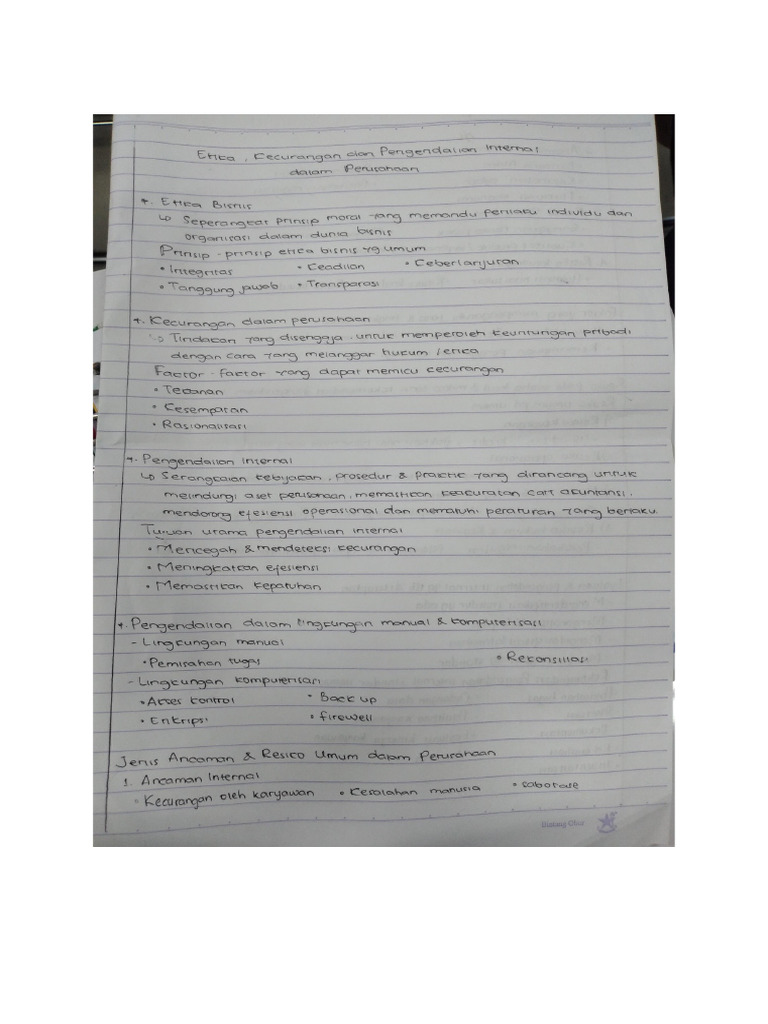 Etika, Kecurangan dan Pengendalian Internal
dalam Perusahaan
*. Etika Bisnis
↳ Seperangkat prinsip moral yang memandu perilaku individu dan
organisasi dalam dunia bisnis
Prinsip-prinsip etika bisnis yg umum
• Integritas • Keadilan • Keberlanjutan
• Tanggung jawab • Transparasi
*. Kecurangan dalam perusahaan
↳ Tindakan yang disengaja untuk memperoleh keuntungan pribadi
dengan cara yang melanggar hukum / etika
Faktor-faktor yang dapat memicu kecurangan
• Tekanan
• Kesempatan
• Rasionalisasi
*. Pengendalian Internal
↳ Serangkaian kebijakan, prosedur & praktik yang dirancang untuk
melindungi aset perusahaan, memastikan keakuratan cart akuntansi,
mendorong efesiensi operasional dan mematuhi peraturan yang berlaku.
Tujuan utama pengendalian internal
• Mencegah & mendeteksi kecurangan
• Meningkatkan efesiensi
• Memastikan kepatuhan
*. Pengendalian dalam lingkungan manual & komputerisasi
- Lingkungan manual
• Pemisahan tugas • Rekonsiliasi
- Lingkungan komputerisasi
• Akses kontrol • Back up
• Enkripsi • firewell
Jenis Ancaman & Resiko Umum dalam Perusahaan
1. Ancaman Internal
• Kecurangan oleh karyawan • Kesalahan manusia • sabotase
Bintang Obor